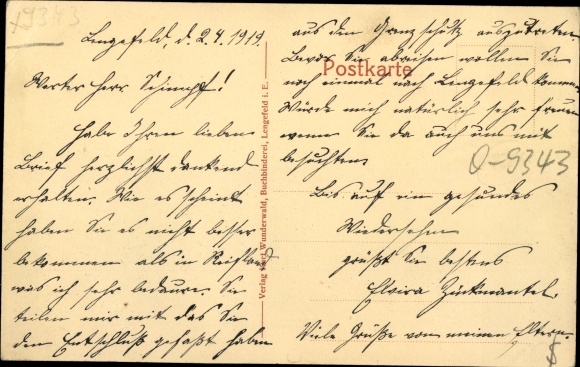 19343
Lengefeld, d. 2.4.1919.
Werter Herr Schimpf!
Habe Ihren lieben
Brief herzlichst dankend
erhalten. Wie es scheint
haben Sie es nicht besser
bekommen als in
was ich sehr bedaure. Sie
teilen mir mit das Sie
den Entschluß gefaßt haben
aus dem Grenzschutz auszutreten.
Bevor Sie abreisen wollen Sie
noch einmal nach Lengefeld kommen.
Würde mich natürlich sehr freuen
wenn Sie da auch uns mit
besuchten.
Bis auf ein gesundes
Wiedersehen
grüßt Sie bestens
Elvira Zückmantel.
Viele Grüße von meinen Eltern.
Postkarte
O-9343
Verlag Wunderwald, Buchbinderei, Lengefeld i. E.